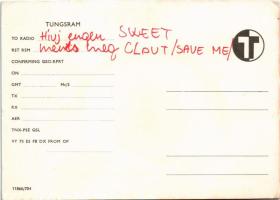 TUNGSRAM
TO RADIO Hívj engem SWEET
RST RSM ments meg CLOUT/SAVE ME/
T
CONFIRMING QSO-RPRT
ON
GMT Mc/s
TX
RX
AER
TNX-PSE QSL
VY 73 ES FB DX FROM OP